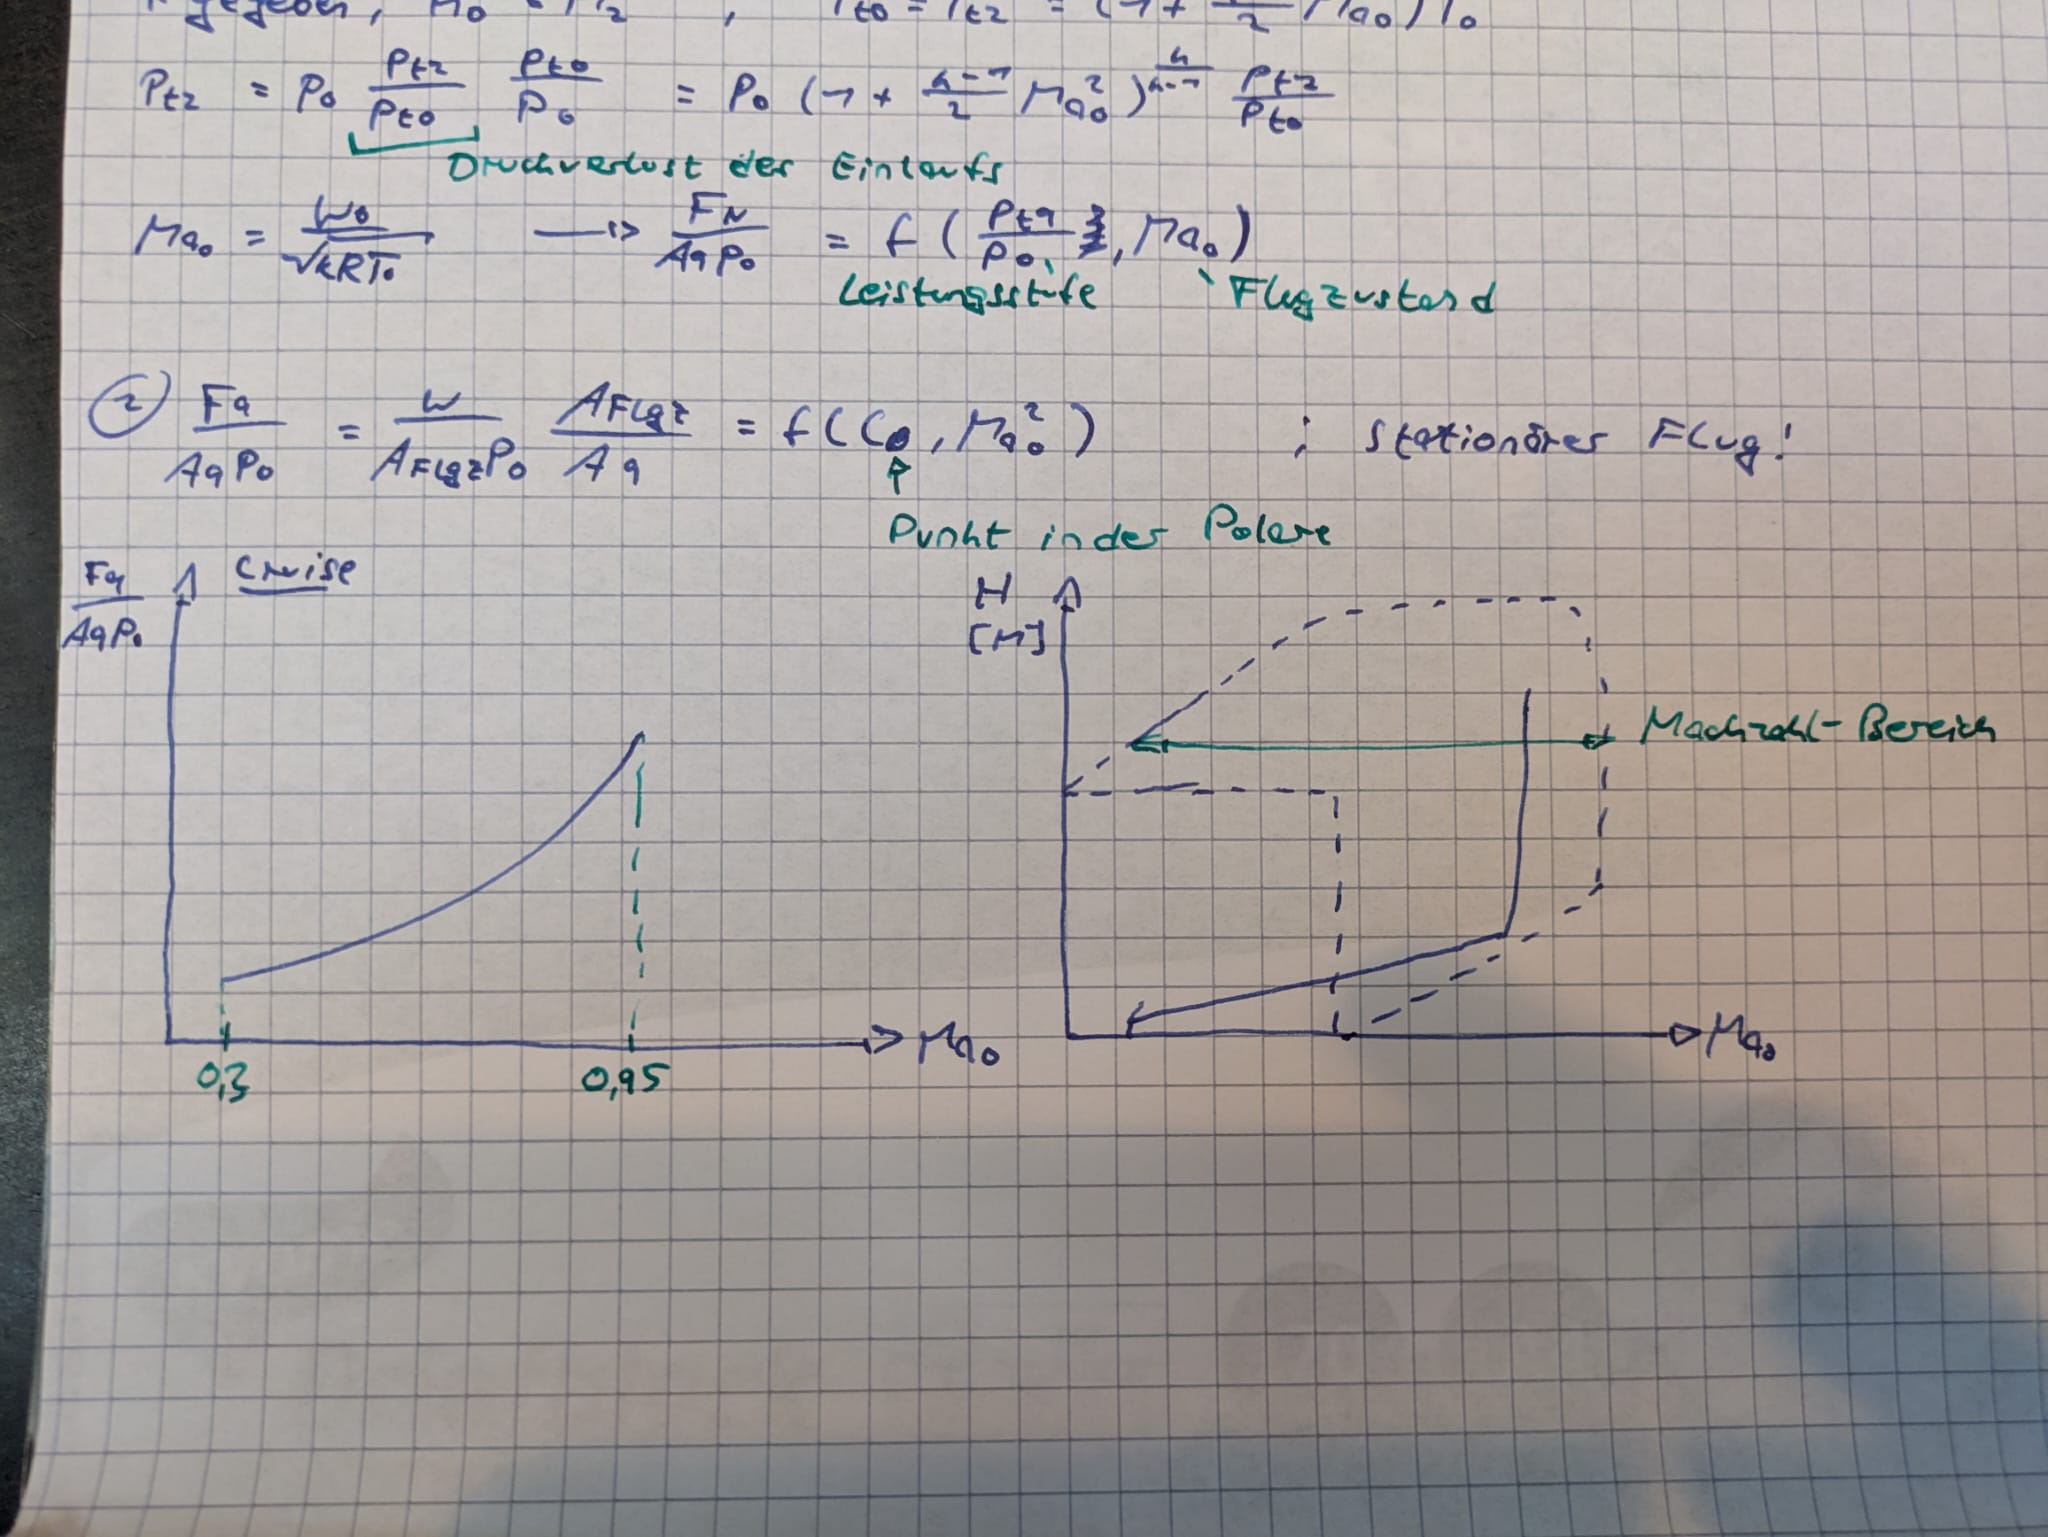 gegeben, H₀ = H₂ , T_t0 = T_t2 = (1 + /2 Ma₀) T₀
P_t2 = P₀ P_t2/P_t0 P_t0/P₀ = P₀ (1 + (κ-1)/2 Ma₀²)^(κ/(κ-1)) P_t2/P_t0
Druckverlust des Einlaufs
Ma₀ = w₀/√(κRT₀) → F_N/(A₉P₀) = f(P_t9/P₀, Ma₀)
Leistungsstufe Flugzustand
② F₉/(A₉P₀) = W/(A_FlgzP₀) A_Flgz/A₉ = f(C₀, Ma₀²) ; stationärer Flug!
Punkt in der Polare
F₉/(A₉P₀) Cruise
H [M]
Machzahl-Bereich
0,3 0,95 Ma₀
Ma₀